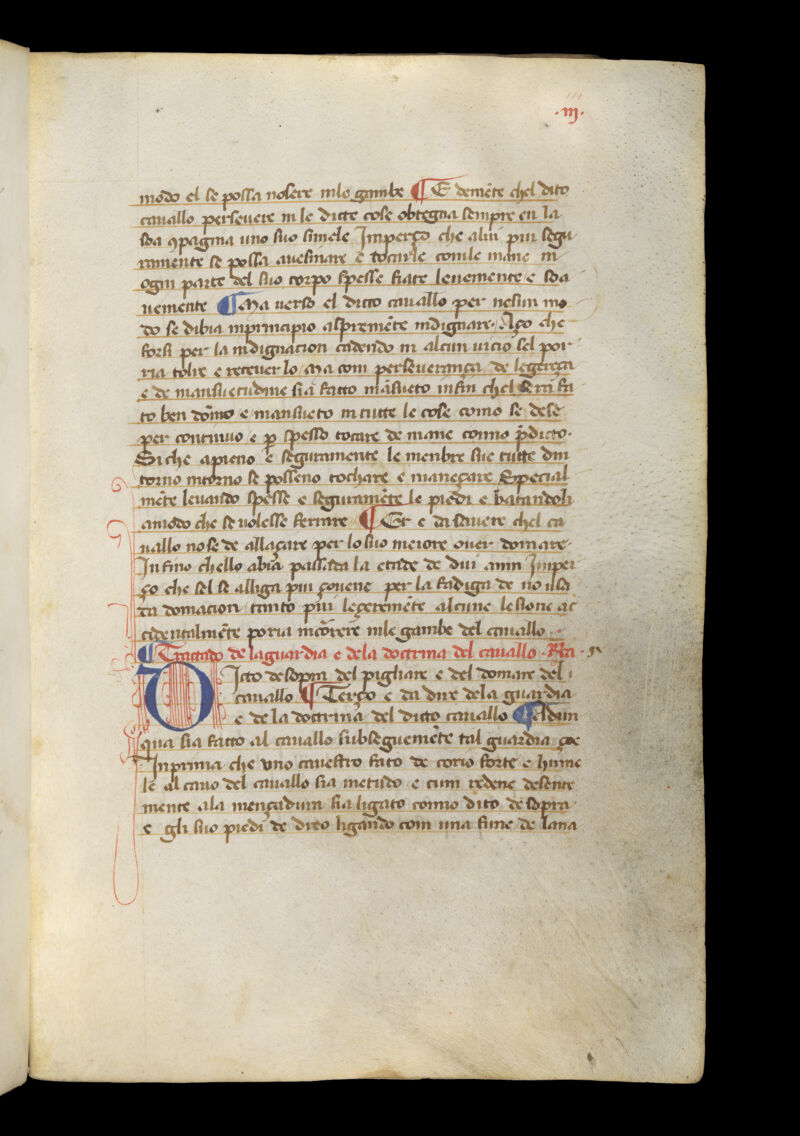 ·III·
modo el se possa nosere inle gambe ¶ E demēte chel dito
cauallo perseuere in le dicte cose obtegna sempre en la
soa ꝯpagnia uno suo simele Imperço che alui piu segu
ramente se possa auesinare e tocarle comle mane in
ogni parte del suo corpo spesse fiate leuemente e soa
uemente ¶ Ma uerso el dicto cauallo per nesun mo
do se dibia inprincipio aspremēte indignare· Aço che
forsi per la indignacion cadendo in alcun uicio sel por
ria tolre e receuer lo Ma com perseuerança de legereça
e de mansuetudine sia fatto māsueto infin chel serra fa
to ben dōmo e mansueto in tutte le cose como se dese
per continuo e ꝑ spesso tocare de mane como p̄dicto·
Si che apieno e seguramente le menbre sue tutte din
torno intorno se posseno tochare e maneçare Special
mēte leuando spesse e seguramēte le piedi e batandoli
amodo che se uolesse ferrare ¶ Et e da sauere chel ca
uallo no se de allaçare per lo suo meiore ouer domare·
Infino chello abia passada la etade de dui anni Imper
ço che sel se alliga piu çouene per la fadiga de no usa
ta domacion tanto piu leçeremēte alcune lesione ac
cidentalmēte poria incōrere inle gambe del cauallo
¶ Tractado de la guardia e dela doctrina del cauallo ·Rca·
Dicto desopra del pigliare e del domare del
cauallo ¶ Terço e da dire dela guardia
e de la doctrina del dicto cauallo ¶ Eldun
qua sia fatto al cauallo subseguemēte tal guardia çoe
Inprima che uno cauestro fato de corio forte e hume
le al cauo del cauallo sia metudo e cum redene desente
mente ala mençadura sia ligato como dito desopra
e gli suo piedi de dreo ligando com una fune de lana